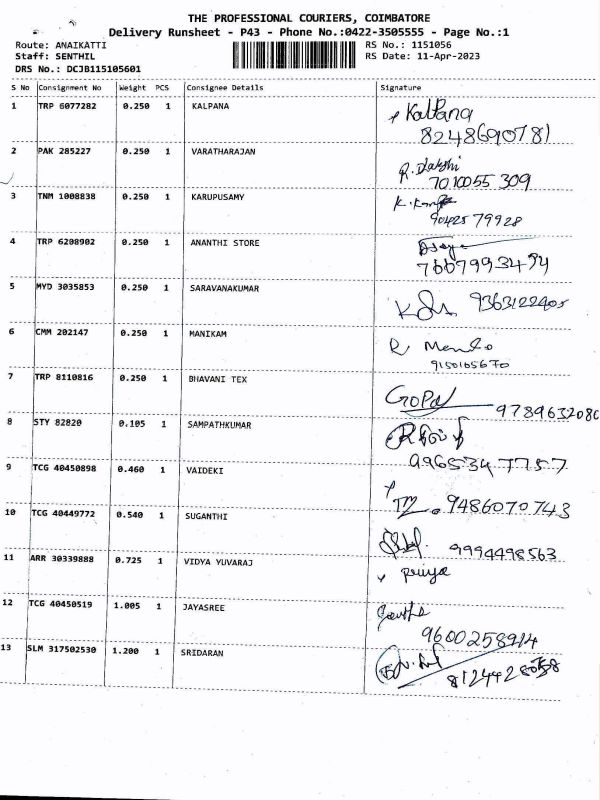 THE PROFESSIONAL COURIERS, COIMBATORE
Delivery Runsheet - P43 - Phone No.:0422-3505555 - Page No.:1
Route: ANAIKATTI
RS No.: 1151056
Staff: SENTHIL
RS Date: 11-Apr-2023
DRS No.: DCJB115105601
S No Consignment No Weight PCS Consignee Details Signature
1 TRP 6077282 0.250 1 KALPANA Kalpana
8248690781
2 PAK 285227 0.250 1 VARATHARAJAN
7010055 309
3 TNM 1008838 0.250 1 KARUPUSAMY
90425 79928
4 TRP 6208902 0.250 1 ANANTHI STORE
5 MYD 3035853 0.250 1 SARAVANAKUMAR 9363122405
6 CMM 202147 0.250 1 MANIKAM
9150165670
7 TRP 8110816 0.250 1 BHAVANI TEX GOPal
9789632080
8 STY 82820 0.105 1 SAMPATHKUMAR
9965347757
9 TCG 40450898 0.460 1 VAIDEKI
9486070743
10 TCG 40449772 0.540 1 SUGANTHI
9994498563
11 ARR 30339888 0.725 1 VIDYA YUVARAJ Priya
12 TCG 40450519 1.005 1 JAYASREE
9600258914
13 SLM 317502530 1.200 1 SRIDARAN